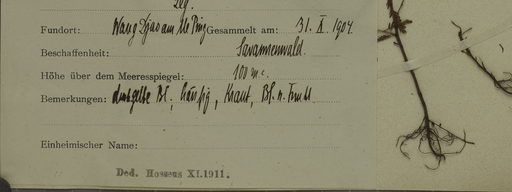 leg.
Fundort: Wang Djao am Me Ping Gesammelt am: 31. X. 1904
Beschaffenheit: Savannenwald.
Höhe über dem Meeresspiegel: 100 m.
Bemerkungen: Bl., häufig, Kraut, Bl. u. Frucht
Einheimischer Name:
Ded. Hosseus XI.1911.